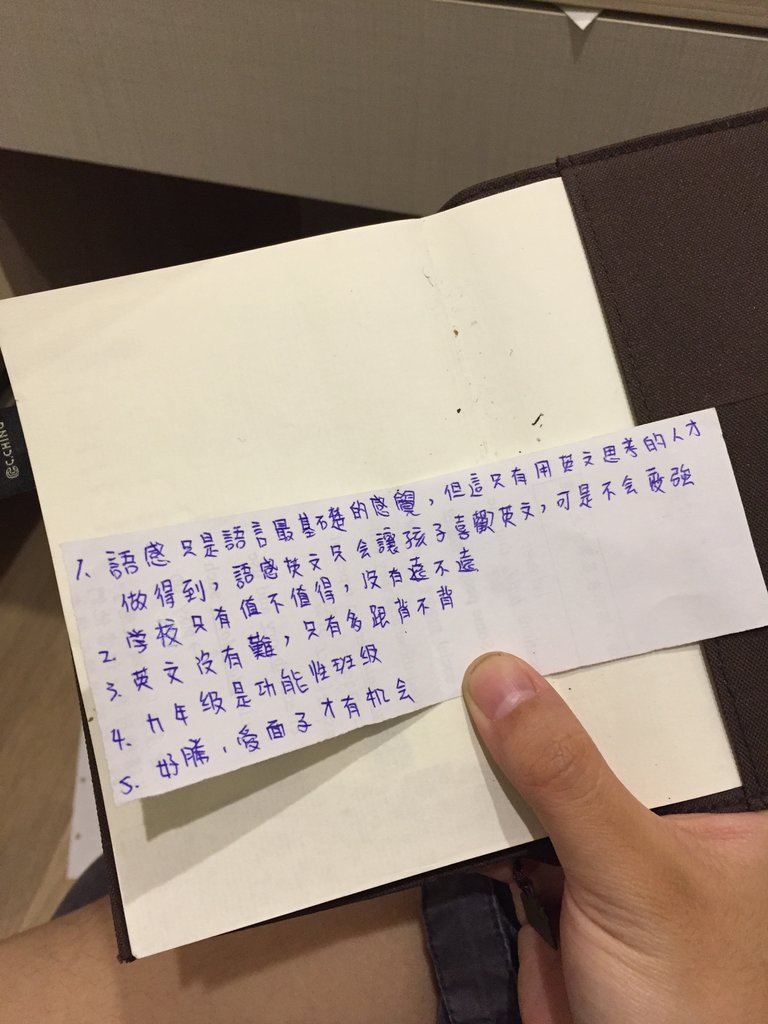 1. 語感只是語言最基礎的感覺，但這只有用英文思考的人才
做得到，語感英文只会讓孩子喜歡英文，可是不会變強
2. 学校只有值不值得，沒有遠不遠
3. 英文沒有難，只有多跟背不背
4. 九年級是功能性班級
5. 好勝，愛面子才有机会
©C.CHING